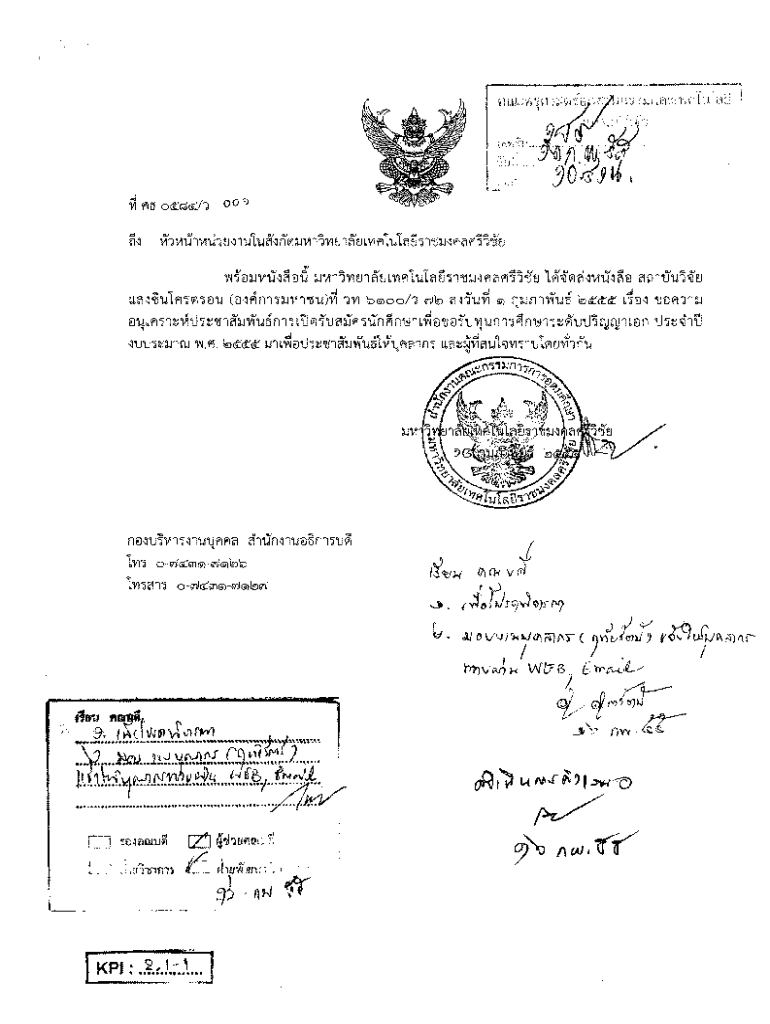 คณะครุศาสตร์อุตสาหกรรมและเทคโนโลยี
ที่ ศธ ๐๕๘๔/ว ๐๐๑
ถึง หัวหน้าหน่วยงานในสังกัดมหาวิทยาลัยเทคโนโลยีราชมงคลศรีวิชัย
พร้อมหนังสือนี้ มหาวิทยาลัยเทคโนโลยีราชมงคลศรีวิชัย ได้จัดส่งหนังสือ สถาบันวิจัย
แสงซินโครตรอน (องค์การมหาชน)ที่ วท ๖๑๐๐/ว ๗๒ ลงวันที่ ๑ กุมภาพันธ์ ๒๕๕๕ เรื่อง ขอความ
อนุเคราะห์ประชาสัมพันธ์การเปิดรับสมัครนักศึกษาเพื่อขอรับทุนการศึกษาระดับปริญญาเอก ประจำปี
งบประมาณ พ.ศ. ๒๕๕๕ มาเพื่อประชาสัมพันธ์ให้บุคลากร และผู้ที่สนใจทราบโดยทั่วกัน
สำนักงานคณะกรรมการการอุดมศึกษา
มหาวิทยาลัยเทคโนโลยีราชมงคลศรีวิชัย
กุมภาพันธ์
มหาวิทยาลัยเทคโนโลยีราชมงคลศรีวิชัย
กองบริหารงานบุคคล สำนักงานอธิการบดี
โทร ๐-๗๔๓๑-๗๑๒๖
โทรสาร ๐-๗๔๓๑-๗๑๒๗
เรียน คณบดี
๑. เพื่อโปรดพิจารณา
๒. มอบงานบุคลากร
WEB, Email
๑๖ กพ. ๕๕
เรียน คณบดี
๑. เพื่อโปรดพิจารณา
WEB, Email
รองคณบดี ผู้ช่วยคณบดี
ฝ่ายวิชาการ ฝ่ายพัฒนา
๑๖ กพ. ๕๕
KPI : 2.1-1